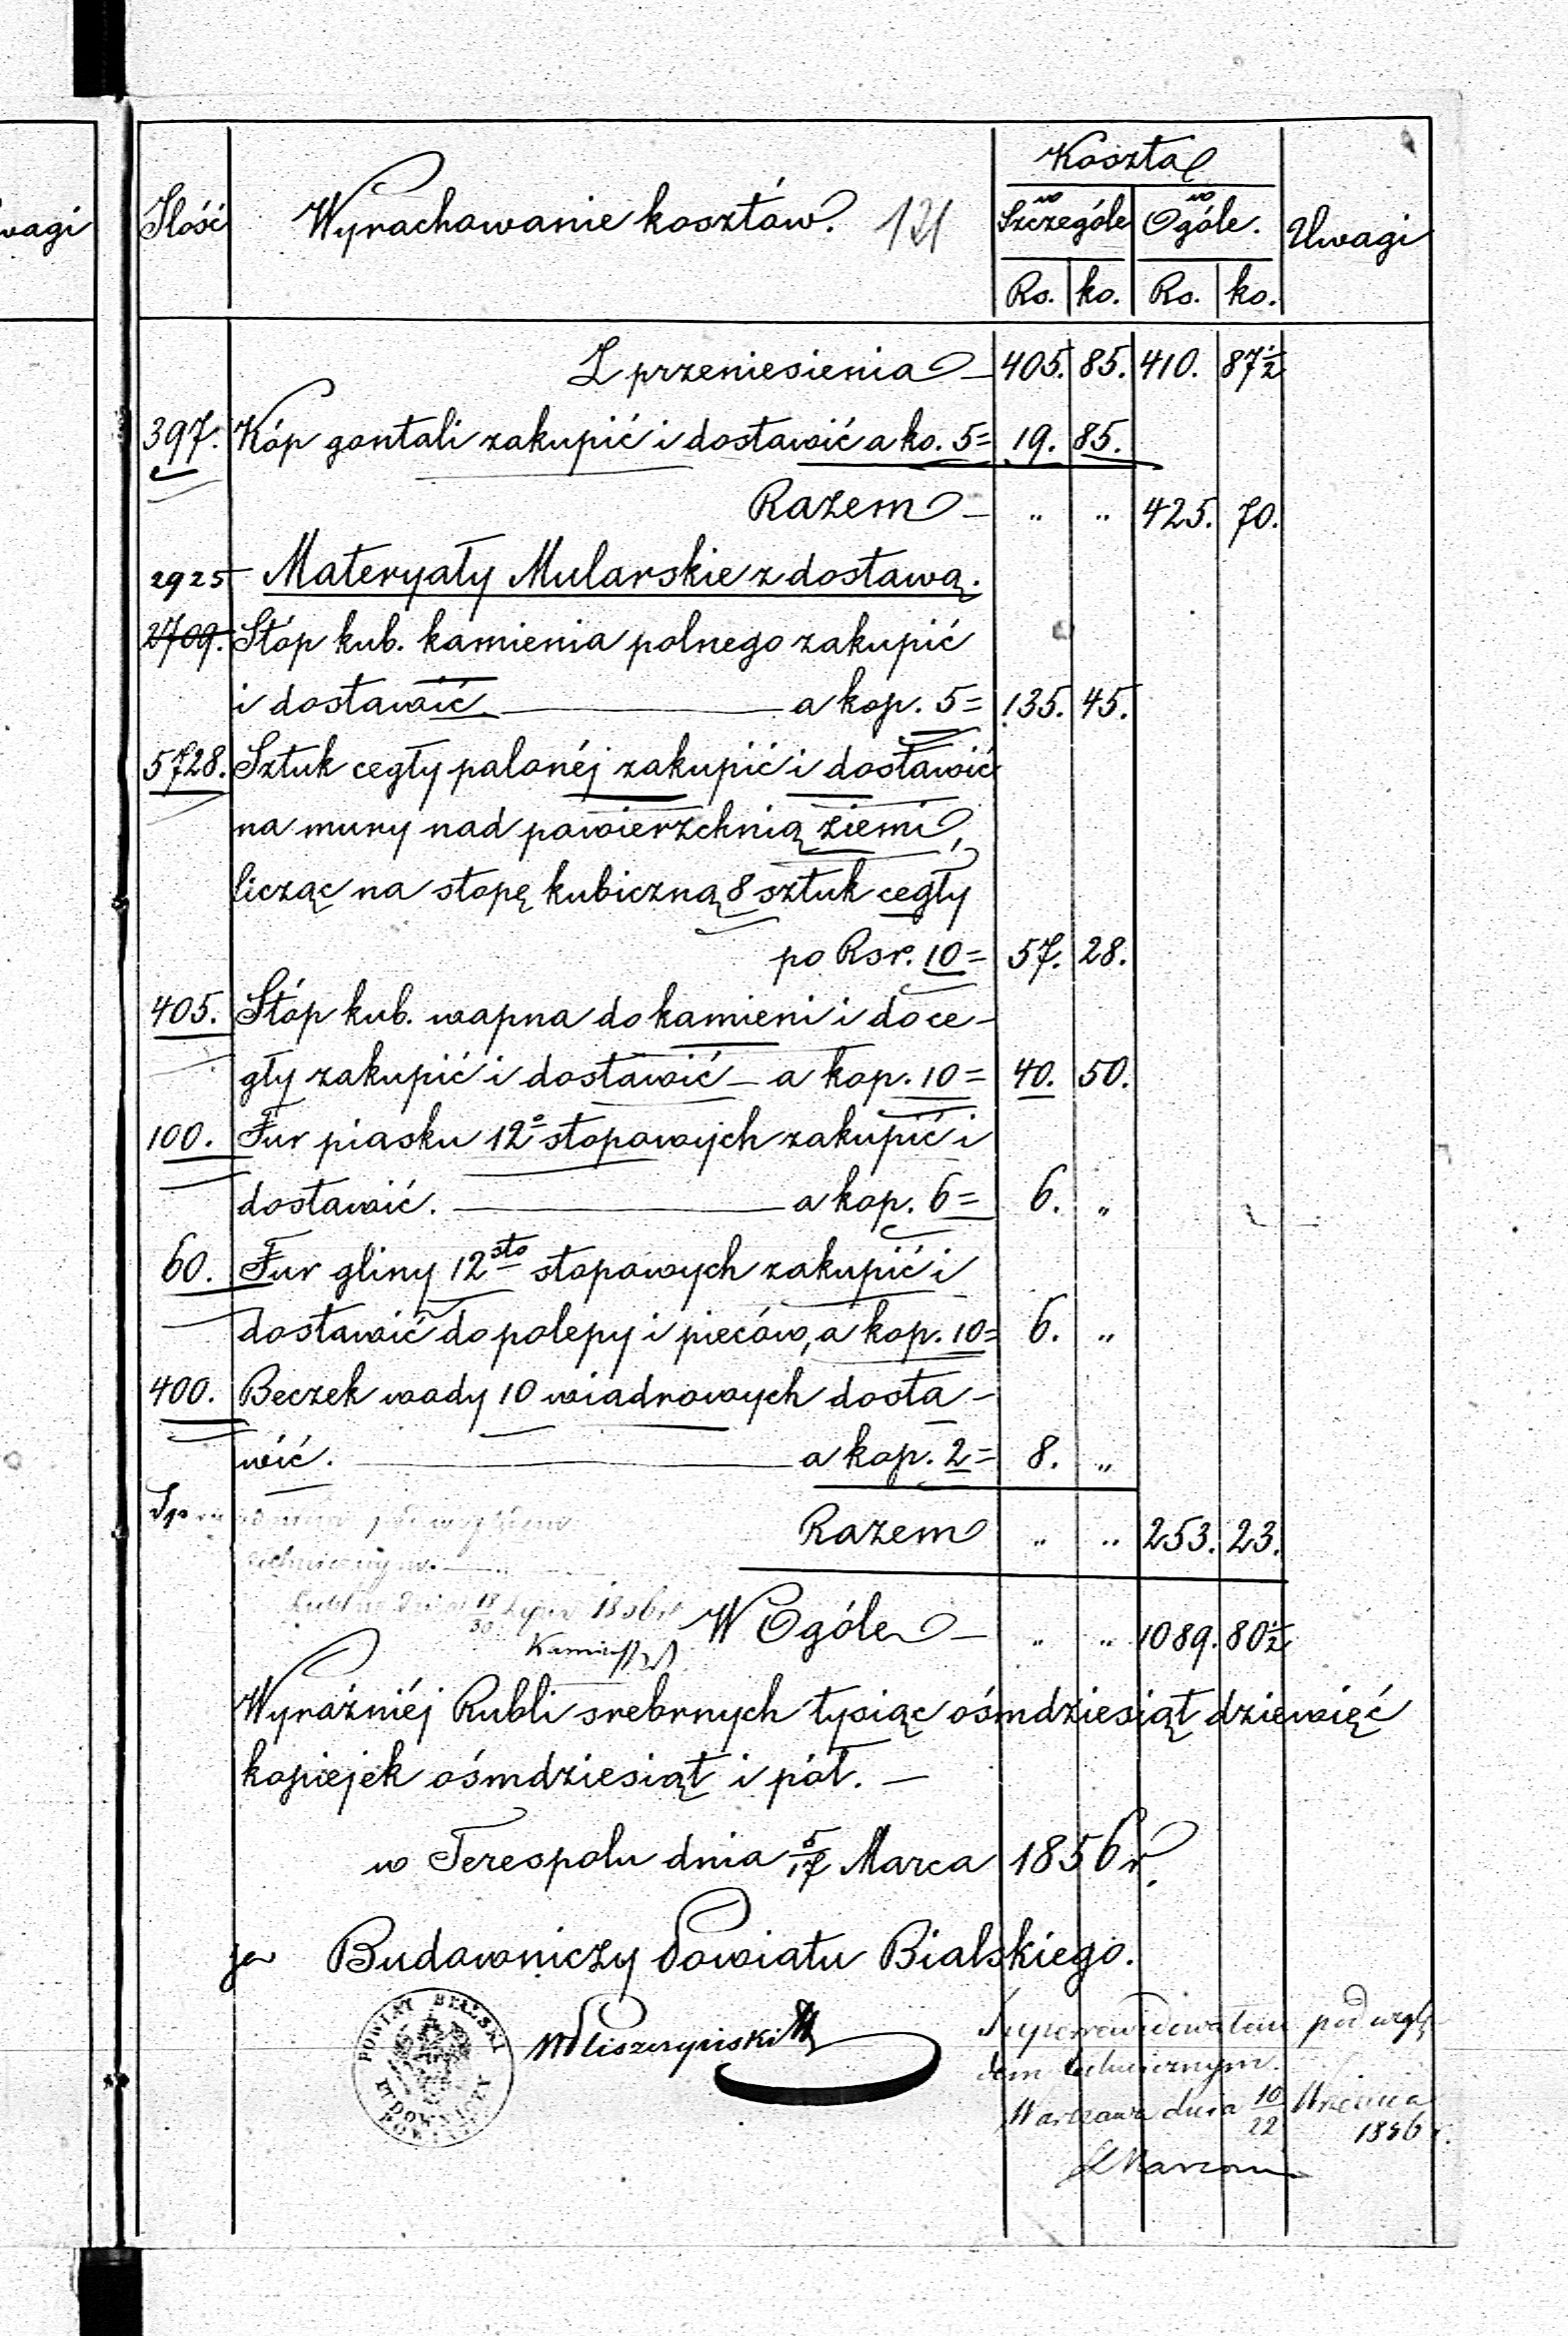 wagi
Ilość Wyrachowanie kosztów. 121 Koszta w Szczególe w Ogóle. Uwagi
Rs. ko. Rs. ko.
Z przeniesienia — 405. 85. 410. 87½
397. Kóp gontali zakupić i dostawić a ko. 5= 19. 85.
Razem — " " 425. 70.
2925 Materyały Mularskie z dostawą.
2709. Stóp kub. kamienia polnego zakupić
i dostawić. — a kop. 5= 135. 45.
5728. Sztuk cegły palonéj zakupić i dostawić
na mury nad powierzchnią ziemi,
licząc na stopę kubiczną 8 sztuk cegły
po Rsr. 10= 57. 28.
405. Stóp kub. wapna do kamieni i do ce-
gły zakupić i dostawić — a kop. 10= 40. 50.
100. Fur piasku 12º stopowych zakupić i
dostawić. — a kop. 6= 6. "
60. Fur gliny 12sto stopowych zakupić i
dostawić do polepy i pieców, a kop. 10= 6. "
400. Beczek wody 10 wiadrowych dosta-
wić. — a kop. 2= 8. "
Razem " " 253. 23.
technicznym. —
dnia 18/30 Lipca 1856 r
W Ogóle — " " 1089. 80½
Wyraźniéj Rubli srebrnych tysiąc ośmdziesiąt dziewięć
kopiejek ośmdziesiąt i pół. —
w Terespolu dnia 5/17 Marca 1856 r.
Budowniczy Powiatu Bialskiego.
POWIAT BIALSKI
BUDOWNICZY POWIATU
Superrewidowałem pod wzglę-
dem technicznym.
Warszawa dnia 10/22 Września
1856 r.